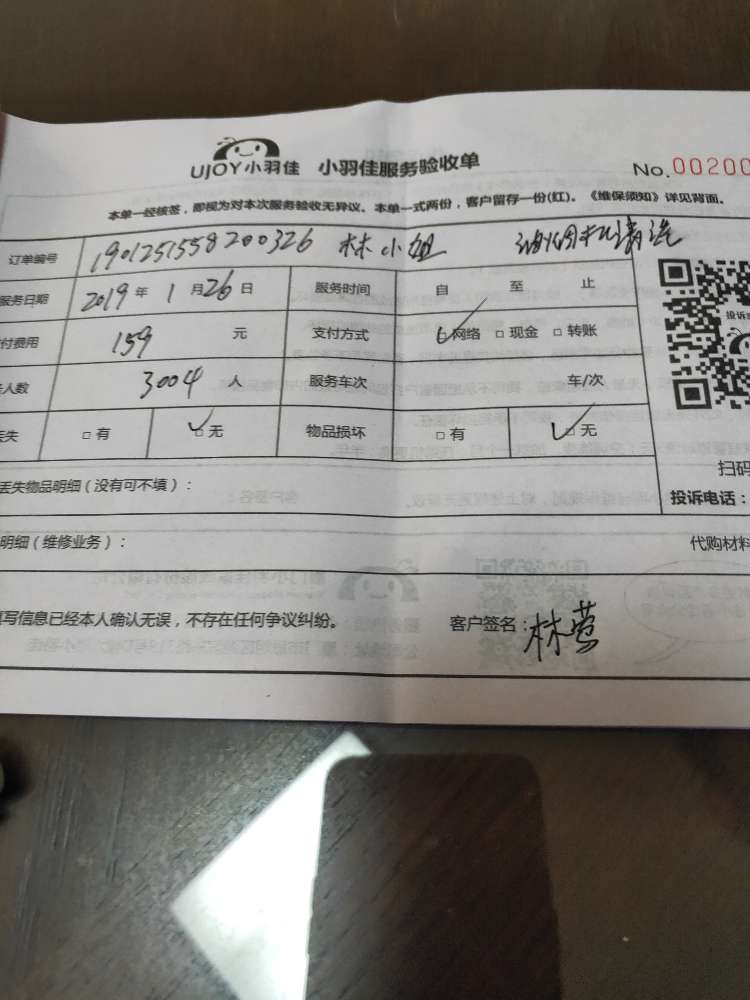 UJOY小羽佳 小羽佳服务验收单
No.00200
本单一经核签，即视为对本次服务验收无异议。本单一式两份，客户留存一份(红)。《维保须知》详见背面。
订单编号 1901251558200326 林小姐 油烟机清洗
服务日期 2019年1月26日 服务时间 自 至 止
付费用 159 元 支付方式 网络 □现金 □转账
人数 3004 人 服务车次 车/次
丢失 □有 □无 物品损坏 □有 □无
投诉
扫码
丢失物品明细（没有可不填）：
投诉电话：
明细（维修业务）：
代购材料
填写信息已经本人确认无误，不存在任何争议纠纷。 客户签名：林莺